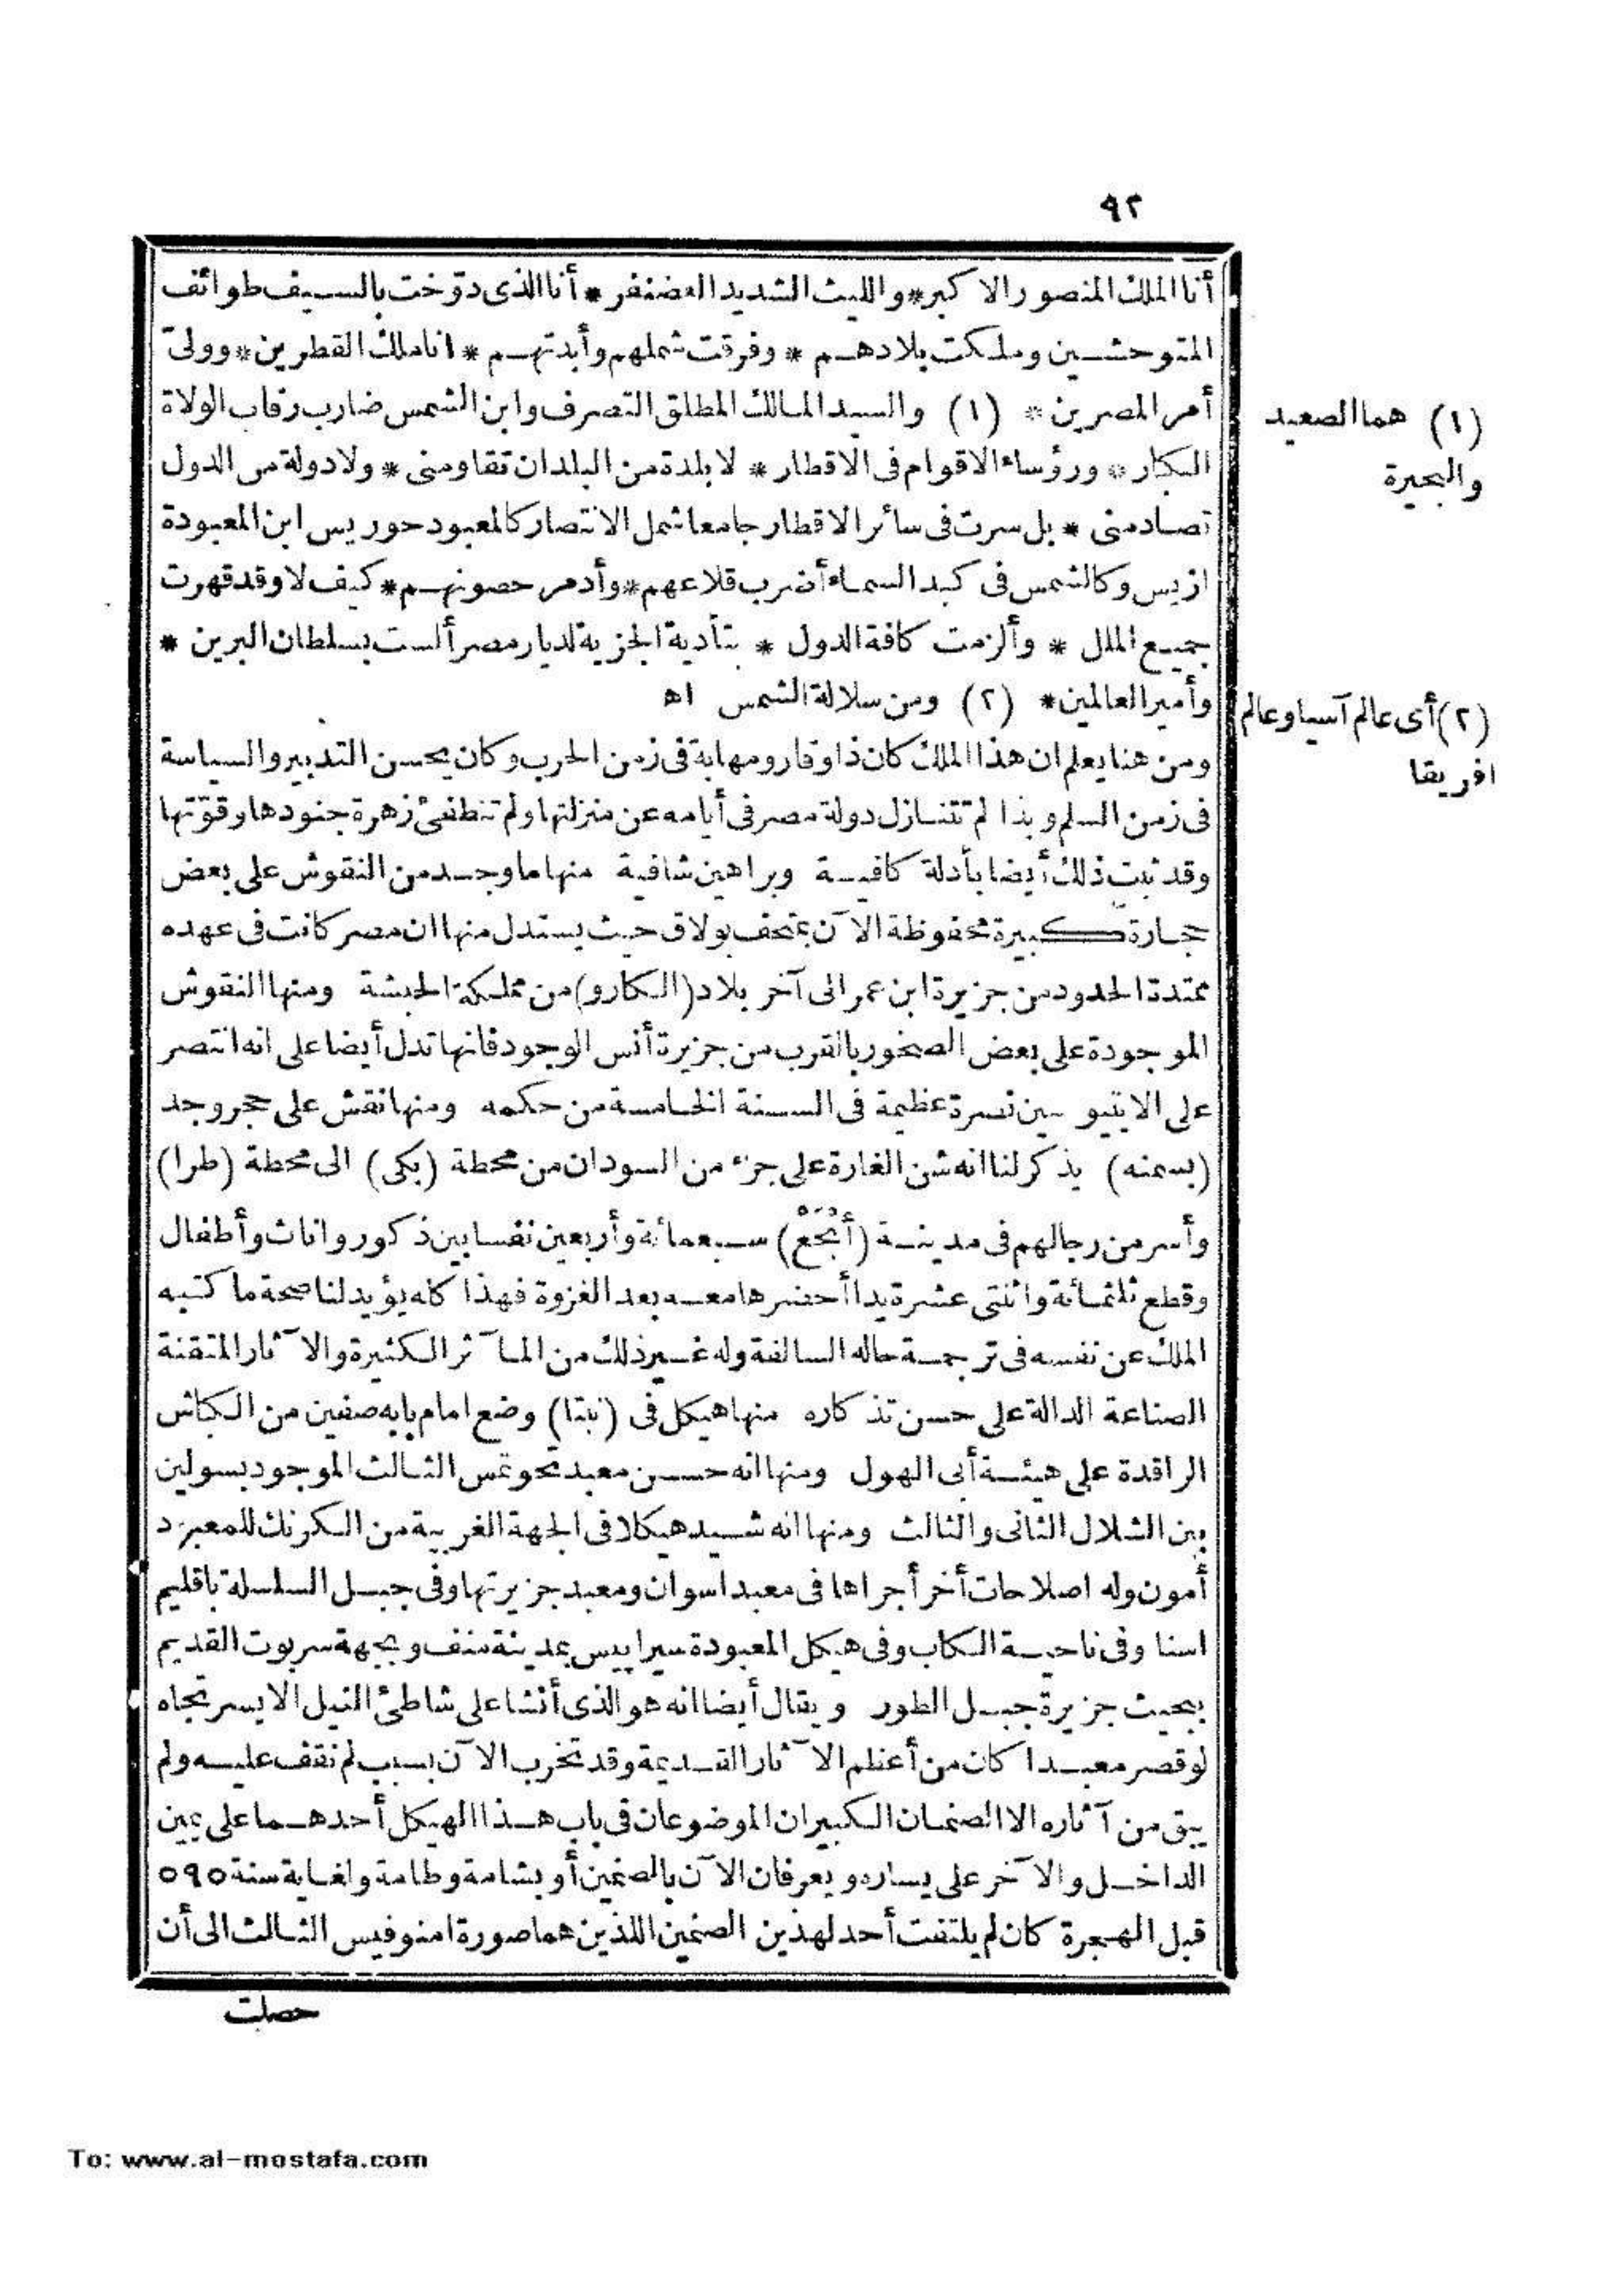 ٩٢
أنا الملك المنصور الاكبر * والليث الشديد الغضنفر * أنا الذى دوّخت بالسيف طوائف
المتوحشين وملكت بلادهم * وفرقت شملهم وأبدتهم * انا ملك القطرين * وولىّ
أمر المصرين * (١) والسيد المالك المطلق التصرف وابن الشمس ضارب رقاب الولاة
الكبار * ورؤساء الاقوام فى الاقطار * لا بلدة من البلدان تقاومنى * ولا دولة من الدول
تصادمنى * بل سرت فى سائر الاقطار جامعا شمل الانتصار كالمعبود حوريس ابن المعبودة
ازيس وكالشمس فى كبد السماء أضرب قلاعهم * وأدمر حصونهم * كيف لا وقد قهرت
جميع الملل * وألزمت كافة الدول * بتأدية الجزية لديار مصر ألست بسلطان البرين *
وأمير العالمين * (٢) ومن سلالة الشمس اه
ومن هنا يعلم ان هذا الملك كان ذا وقار ومهابة فى زمن الحرب وكان يحسن التدبير والسياسة
فى زمن السلم وبذا لم تتنازل دولة مصر فى أيامه عن منزلتها ولم تنطفئ زهرة جنودها وقوّتها
وقد ثبت ذلك أيضا بأدلة كافية وبراهين شافية منها ما وجد من النقوش على بعض
حجارة كبيرة محفوظة الآن بمتحف بولاق حيث يستدل منها ان مصر كانت فى عهده
ممتدة الحدود من جزيرة ابن عمر الى آخر بلاد (الكارو) من مملكة الحبشة ومنها النقوش
الموجودة على بعض الصخور بالقرب من جزيرة أنس الوجود فانها تدل أيضا على انه انتصر
على الايتيوبيين نصرة عظيمة فى السنة الخامسة من حكمه ومنها نقش على حجر وجد
(بسمنه) يذكر لنا انه شن الغارة على جزء من السودان من محطة (بكى) الى محطة (طرا)
وأسر من رجالهم فى مدينة (أبْحَعْ) سبعمائة وأربعين نفسا بين ذكور واناث وأطفال
وقطع ثلثمائة واثنتى عشرة يدا أحضرها معه بعد الغزوة فهذا كله يؤيد لنا صحة ما كتبه
الملك عن نفسه فى ترجمة حاله السالفة وله غير ذلك من المآثر الكثيرة والآثار المتقنة
الصناعة الدالة على حسن تذكاره منها هيكل فى (نبتا) وضع امام بابه صفين من الكباش
الراقدة على هيئة أبى الهول ومنها انه حسن معبد تحوتمس الثالث الموجود بسولين
بين الشلال الثانى والثالث ومنها انه شيد هيكلا فى الجهة الغربية من الكرنك للمعبود
أمون وله اصلاحات أخر أجراها فى معبد اسوان ومعبد جزيرتها وفى جبل السلسلة باقليم
اسنا وفى ناحية الكاب وفى هيكل المعبودة سيرابيس بمدينة منف وبجهة سربوت القديم
ببحيث جزيرة جبل الطور ويقال أيضا انه هو الذى أنشا على شاطئ النيل الايسر تجاه
لوقصر معبدا كان من أعظم الآثار القديمة وقد تخرب الآن بسبب لم نقف عليه ولم
يبق من آثاره الا الصنمان الكبيران الموضوعان فى باب هذا الهيكل أحدهما على يمين
الداخل والآخر على يساره ويعرفان الآن بالصنمين أو بشامة وطامة ولغاية سنة ٥٩٥
قبل الهجرة كان لم يلتفت أحد لهذين الصنمين اللذين هما صورة امنوفيس الثالث الى أن
حصلت
(١) هما الصعيد
والبحيرة
(٢) أى عالم آسيا وعالم
افريقا
To: www.al-mostafa.com